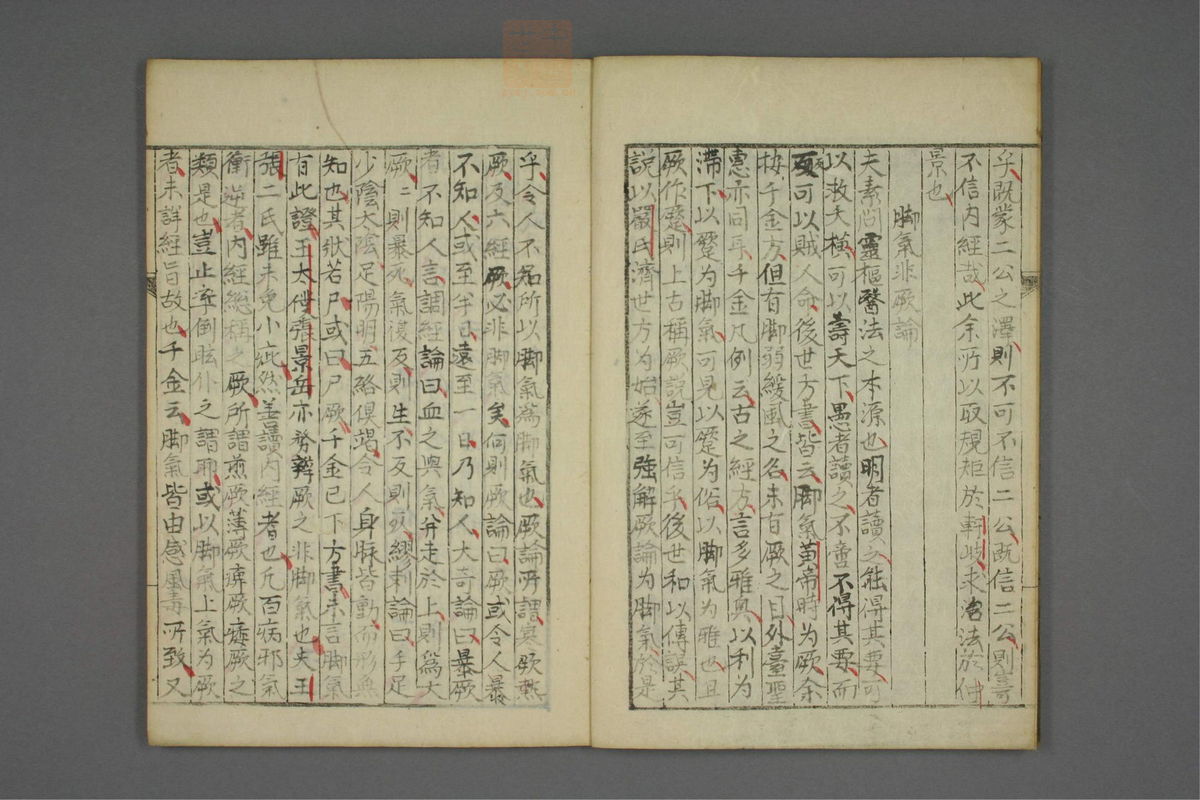 乎既蒙二公之澤則不可不信二公既信二公則豈
不信内經哉此余所以取規矩於軒岐求治法於仲
景也
脚氣非厥論
夫素問靈樞醫法之本源也明者讀之能得其要可
以救夭橫可以壽天下愚者讀之不啻不得其要而
可以賊人命後世方書皆云脚氣黃帝時為厥余
按千金方但有脚弱緩風之名未有厥之目外臺聖
惠亦同耳千金凡例云古之經方言多雅奧以利為
滯下以蹷為脚氣可見以蹷為俗以脚氣為雅也且
厥作蹷則上古稱厥說豈可信乎後世和以傳誤其
説以嚴氏濟世方為始遂至強解厥論為脚氣於是
乎令人不知所以脚氣為脚氣也厥論所謂寒厥熱
厥及六經厥必非脚氣矣何則厥論曰厥或令人暴
不知人或至半日遠至一日乃知人大奇論曰暴厥
者不知人言調經論曰血之與氣并走於上則為大
厥〻則暴死氣復反則生不反則死繆刺論曰手足
少陰太陰足陽明五絡俱竭令人身脉皆動而形無
知也其狀若尸或曰尸厥千金已下方書未言脚氣
有此證王太僕張景岳亦務辨厥之非脚氣也夫王
張二氏雖未免小疵然善讀内經者也凡百病邪氣
衝逆者内經総稱之厥所謂煎厥薄厥痺厥痿厥之
類是也豈止卒倒眩仆之謂耶或以脚氣上氣為厥
者未詳經旨故也千金云脚氣皆由感風毒所致又